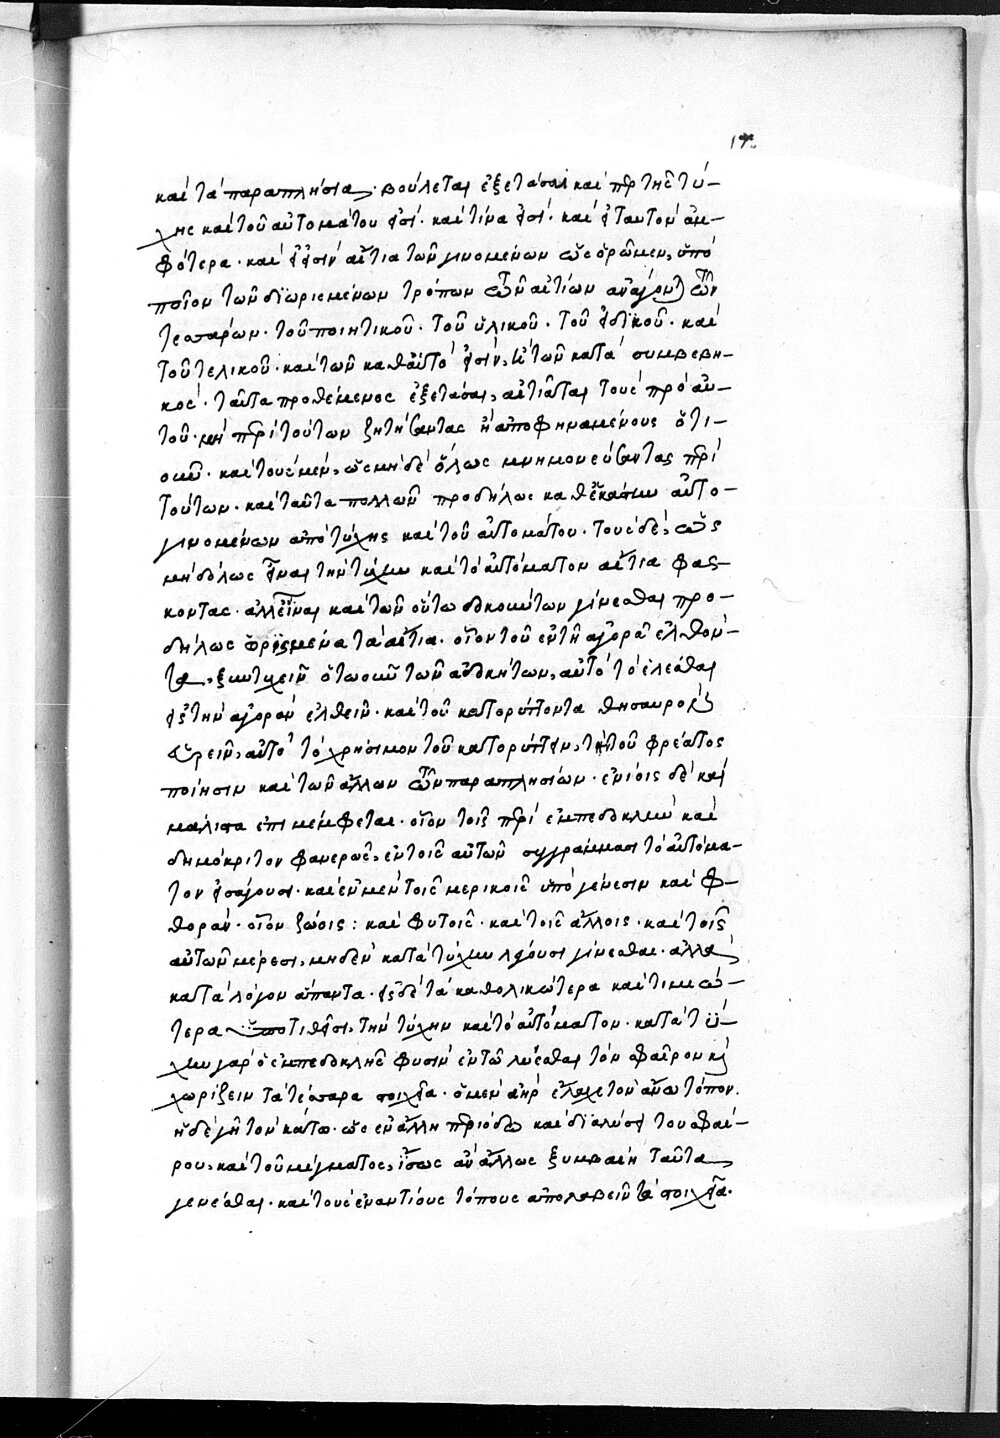 καὶ τὰ παραπλήσια. βούλεται ἐξετάσαι καὶ περὶ τῆς τύ-
χης καὶ τοῦ αὐτομάτου εἰσί. καὶ τίνα εἰσί. καὶ εἰ ταυτὸν ἀμ-
φότερα. καὶ εἰ εἰσὶν αἴτια τῶν γινομένων ὡς ὁρῶμεν, ὑπὸ
ποῖον τῶν διωρισμένων τρόπων τῶν αἰτίων ἀνάγονται τῶν
τεσσάρων. τοῦ ποιητικοῦ. τοῦ ὑλικοῦ. τοῦ εἰδικοῦ. καὶ
τοῦ τελικοῦ. καὶ τῶν καθαυτό εἰσιν, ἢ τῶν κατὰ συμβεβη-
κός. ταῦτα προθέμενος ἐξετάσαι, αἰτιᾶται τοὺς πρὸ αὐ-
τοῦ. μὴ περὶ τούτων ζητήσαντας ἢ ἀποφηναμένους ὅτι-
οῦν. καὶ τοὺς μὲν, ὡς μηδὲ ὅλως μνημονεύσαντας περὶ
τούτων. καὶ ταῦτα πολλῶν προδήλως καθεκάστην αὐτο-
γινομένων ἀπὸ τύχης καὶ τοῦ αὐτομάτου. τοὺς δὲ, ὡς
μηδόλως εἶναι τὴν τύχην καὶ τὸ αὐτόματον αἴτια φάσ-
κοντας. ἀλλ' εἶναι καὶ τῶν οὕτω δοκούντων γίνεσθαι προ-
δήλως ὡρισμένα τὰ αἴτια. οἷον τοῦ ἐν τῇ ἀγορᾷ ἐλθόν-
τα, ξυντυχεῖν ὁτωοῦν τῶν ἀδοκήτων, αὐτὸ τὸ ἑλέσθαι
εἰς τὴν ἀγορὰν ἐλθεῖν. καὶ τοῦ κατορύττοντα θησαυροῖς
εὑρεῖν, αὐτὸ τὸ χρήσιμον τοῦ κατορύττειν, τὴν τοῦ φρέατος
ποίησιν καὶ τῶν ἄλλων τῶν παραπλησίων. ἐνίοις δὲ καὶ
μάλιστα ἐπιμέμφεται. οἷον τοῖς περὶ ἐμπεδοκλῆν καὶ
δημόκριτον φανερῶς, ἐν τοῖς αὐτῶν συγγράμμασι τὸ αὐτόμα-
τον εἰσάγουσι. καὶ ἐν μὲν τοῖς μερικοῖς ὑπὸ γένεσιν καὶ φ-
θοράν. οἷον ζώοις: καὶ φυτοῖς. καὶ τοῖς ἄλλοις. καὶ τοῖς
αὐτῶν μέρεσι, μηδὲν κατὰ τύχην λέγουσι γίνεσθαι. ἀλλὰ
κατὰ λόγον ἅπαντα. εἰς δὲ τὰ καθολικώτερα καὶ τιμιώ-
τερα τιθεῖσι, τὴν τύχην καὶ τὸ αὐτόματον. κατὰ τύ-
χην γὰρ ὁ ἐμπεδοκλῆς φυσὶν ἐν τῷ λύεσθαι τὸν σφαῖρον καὶ
χωρίζειν τὰ τέσσαρα στοιχεῖα. ὁ μὲν ἀὴρ ἔλαχε τὸν ἄνω τόπον.
ἡ δὲ γῆ τὸν κάτω. ὡς ἐν ἄλλῃ περιόδῳ καὶ διαλύσει τοῦ σφαί-
ρου, καὶ τοῦ μίγματος, ἴσως ἂν ἄλλως ξυμβαίη ταῦτα
γενέσθαι. καὶ τοὺς ἐναντίους τόπους ἀπολαβεῖν τὰ στοιχεῖα.